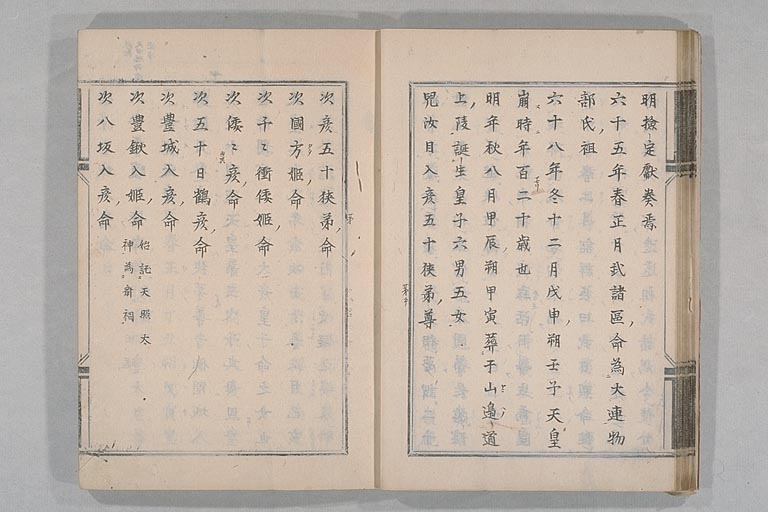 明撿定獻奏焉
六十五年春正月武諸區命為大連物
部氏祖
六十八年冬十二月戊申朔壬子天皇
崩時年百二十歳也
明年秋八月甲辰朔甲寅葬于山邉道
上陵誕生皇子六男五女
兒汝目入彦五十狹茅尊
次彦五十狹茅命
次國方姬命
次千々衝倭姬命
次倭々彦命
次五十日鶴彦命
次豊城入彦命
次豊鍬入姬命 始託天照大
神為齋祠
次八坂入彦命